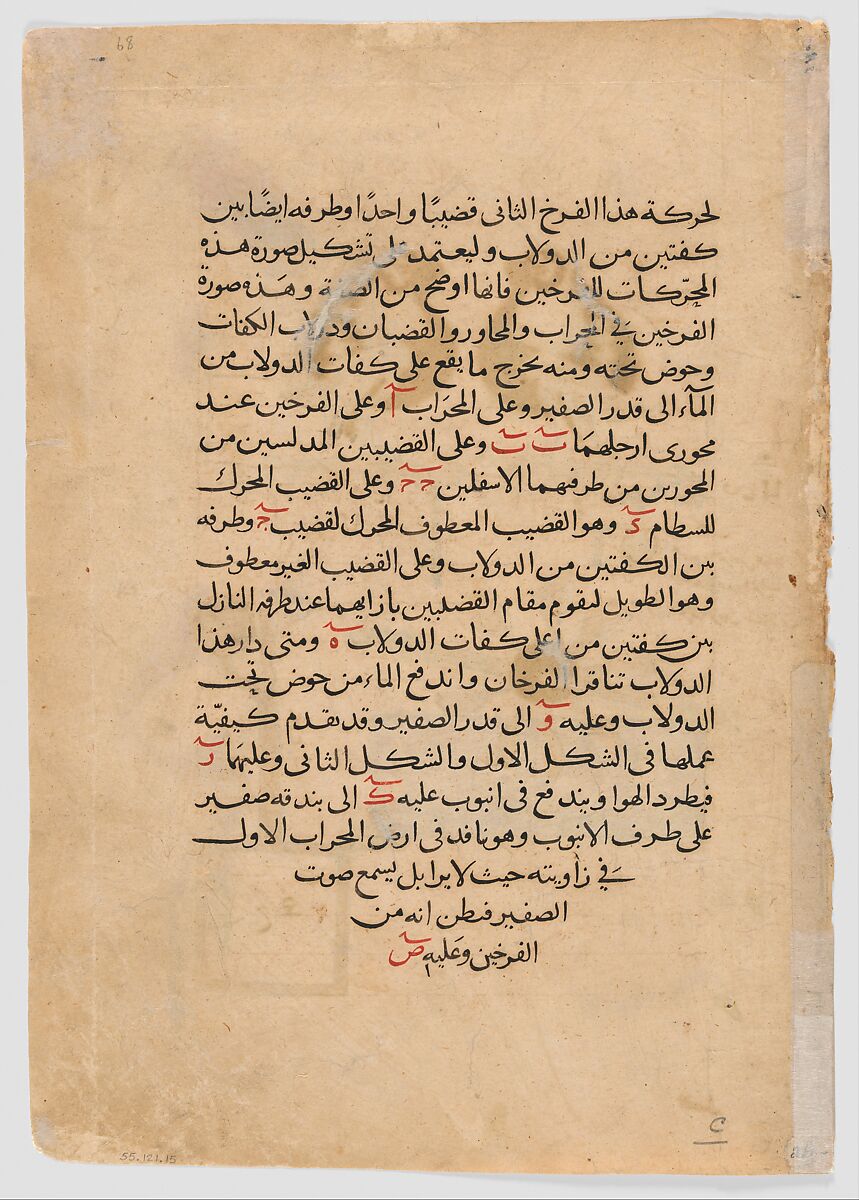 68
لحركة هذا الفرخ الثانى قضيبًا واحدًا وطرفه ايضًا بين
كفتين من الدولاب وليعتمد على تشكيل صورة هذه
المحرّكات للفرخين فانها اوضح من الصفة وهذه صورة
الفرخين في المحراب والمحاور والقضبان ودولاب الكفات
وحوض تحته ومنه يخرج ما يقع على كفات الدولاب من
المآء الى قدر الصفير وعلى المحراب آ وعلى الفرخين عند
محورى ارجلهما ب ب وعلى القضيبين المدلسين من
المحورين من طرفيهما الاسفلين ح ح وعلى القضيب المحرك
للسطام د وهو القضيب المعطوف المحرك لقضيب ح وطرفه
بين الكفتين من الدولاب وعلى القضيب الغير معطوف
وهو الطويل ليقوم مقام القضيبين بازايهما عند طرفه النازل
بين كفتين من اعلى كفات الدولاب ه ومتى دار هذا
الدولاب تناقرا الفرخان واندفع الماء من حوض تحت
الدولاب وعليه و الى قدر الصفير وقد تقدم كيفيّة
عملها فى الشكل الاول والشكل الثانى وعليهما ر
فيطرد الهوا ويندفع فى انبوب عليه ك الى بندقه صفير
على طرف الانبوب وهو نافد فى ارض المحراب الاول
في زاويته حيث لا يرا بل يسمع صوت
الصفير فيظن انه من
الفرخين وعليه ص
55.121.15